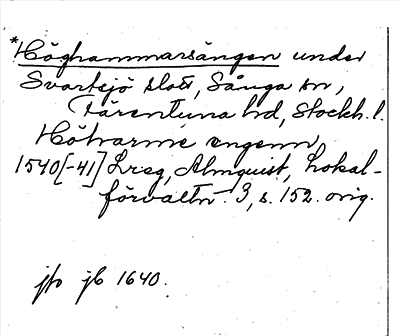 *Höghammarsängen under
Svartsjö slott, Sånga sn,
Färentuna hd, Stockh. l.
Hölvarme engenn,
1540[-41] Lreg, Almquist, Lokal-
förvaltn. 3, s. 152. orig.
jfr jb 1640.